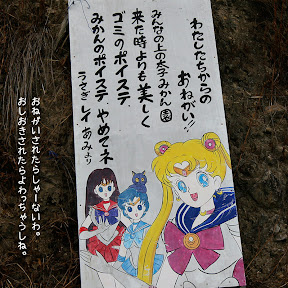 わたしたちからの
おねがい!!
みんなの上の太子みかん園
来た時よりも美しく
ゴミのポイステ
みかんのポイステ やめてネ
うさぎ レイ あみより
おねがいされたらしゃーないわ。
おしおきされたらよわっちゃうしね。